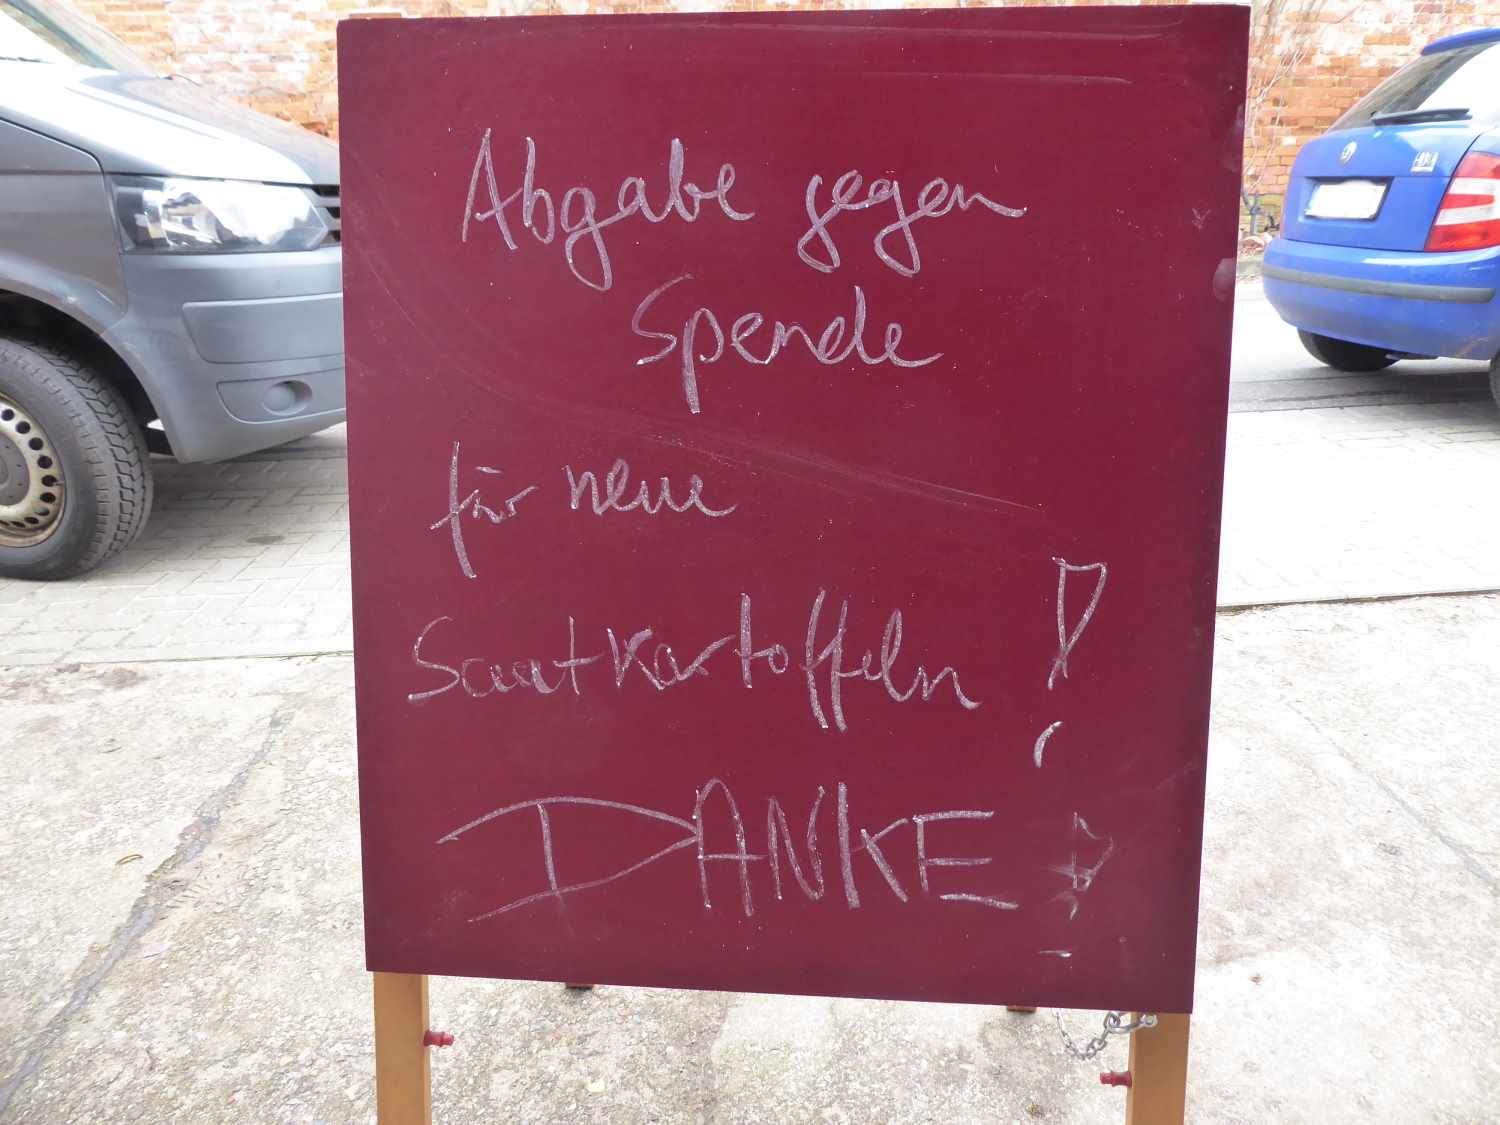 Abgabe gegen
Spende
für neue
Saatkartoffeln!
DANKE!